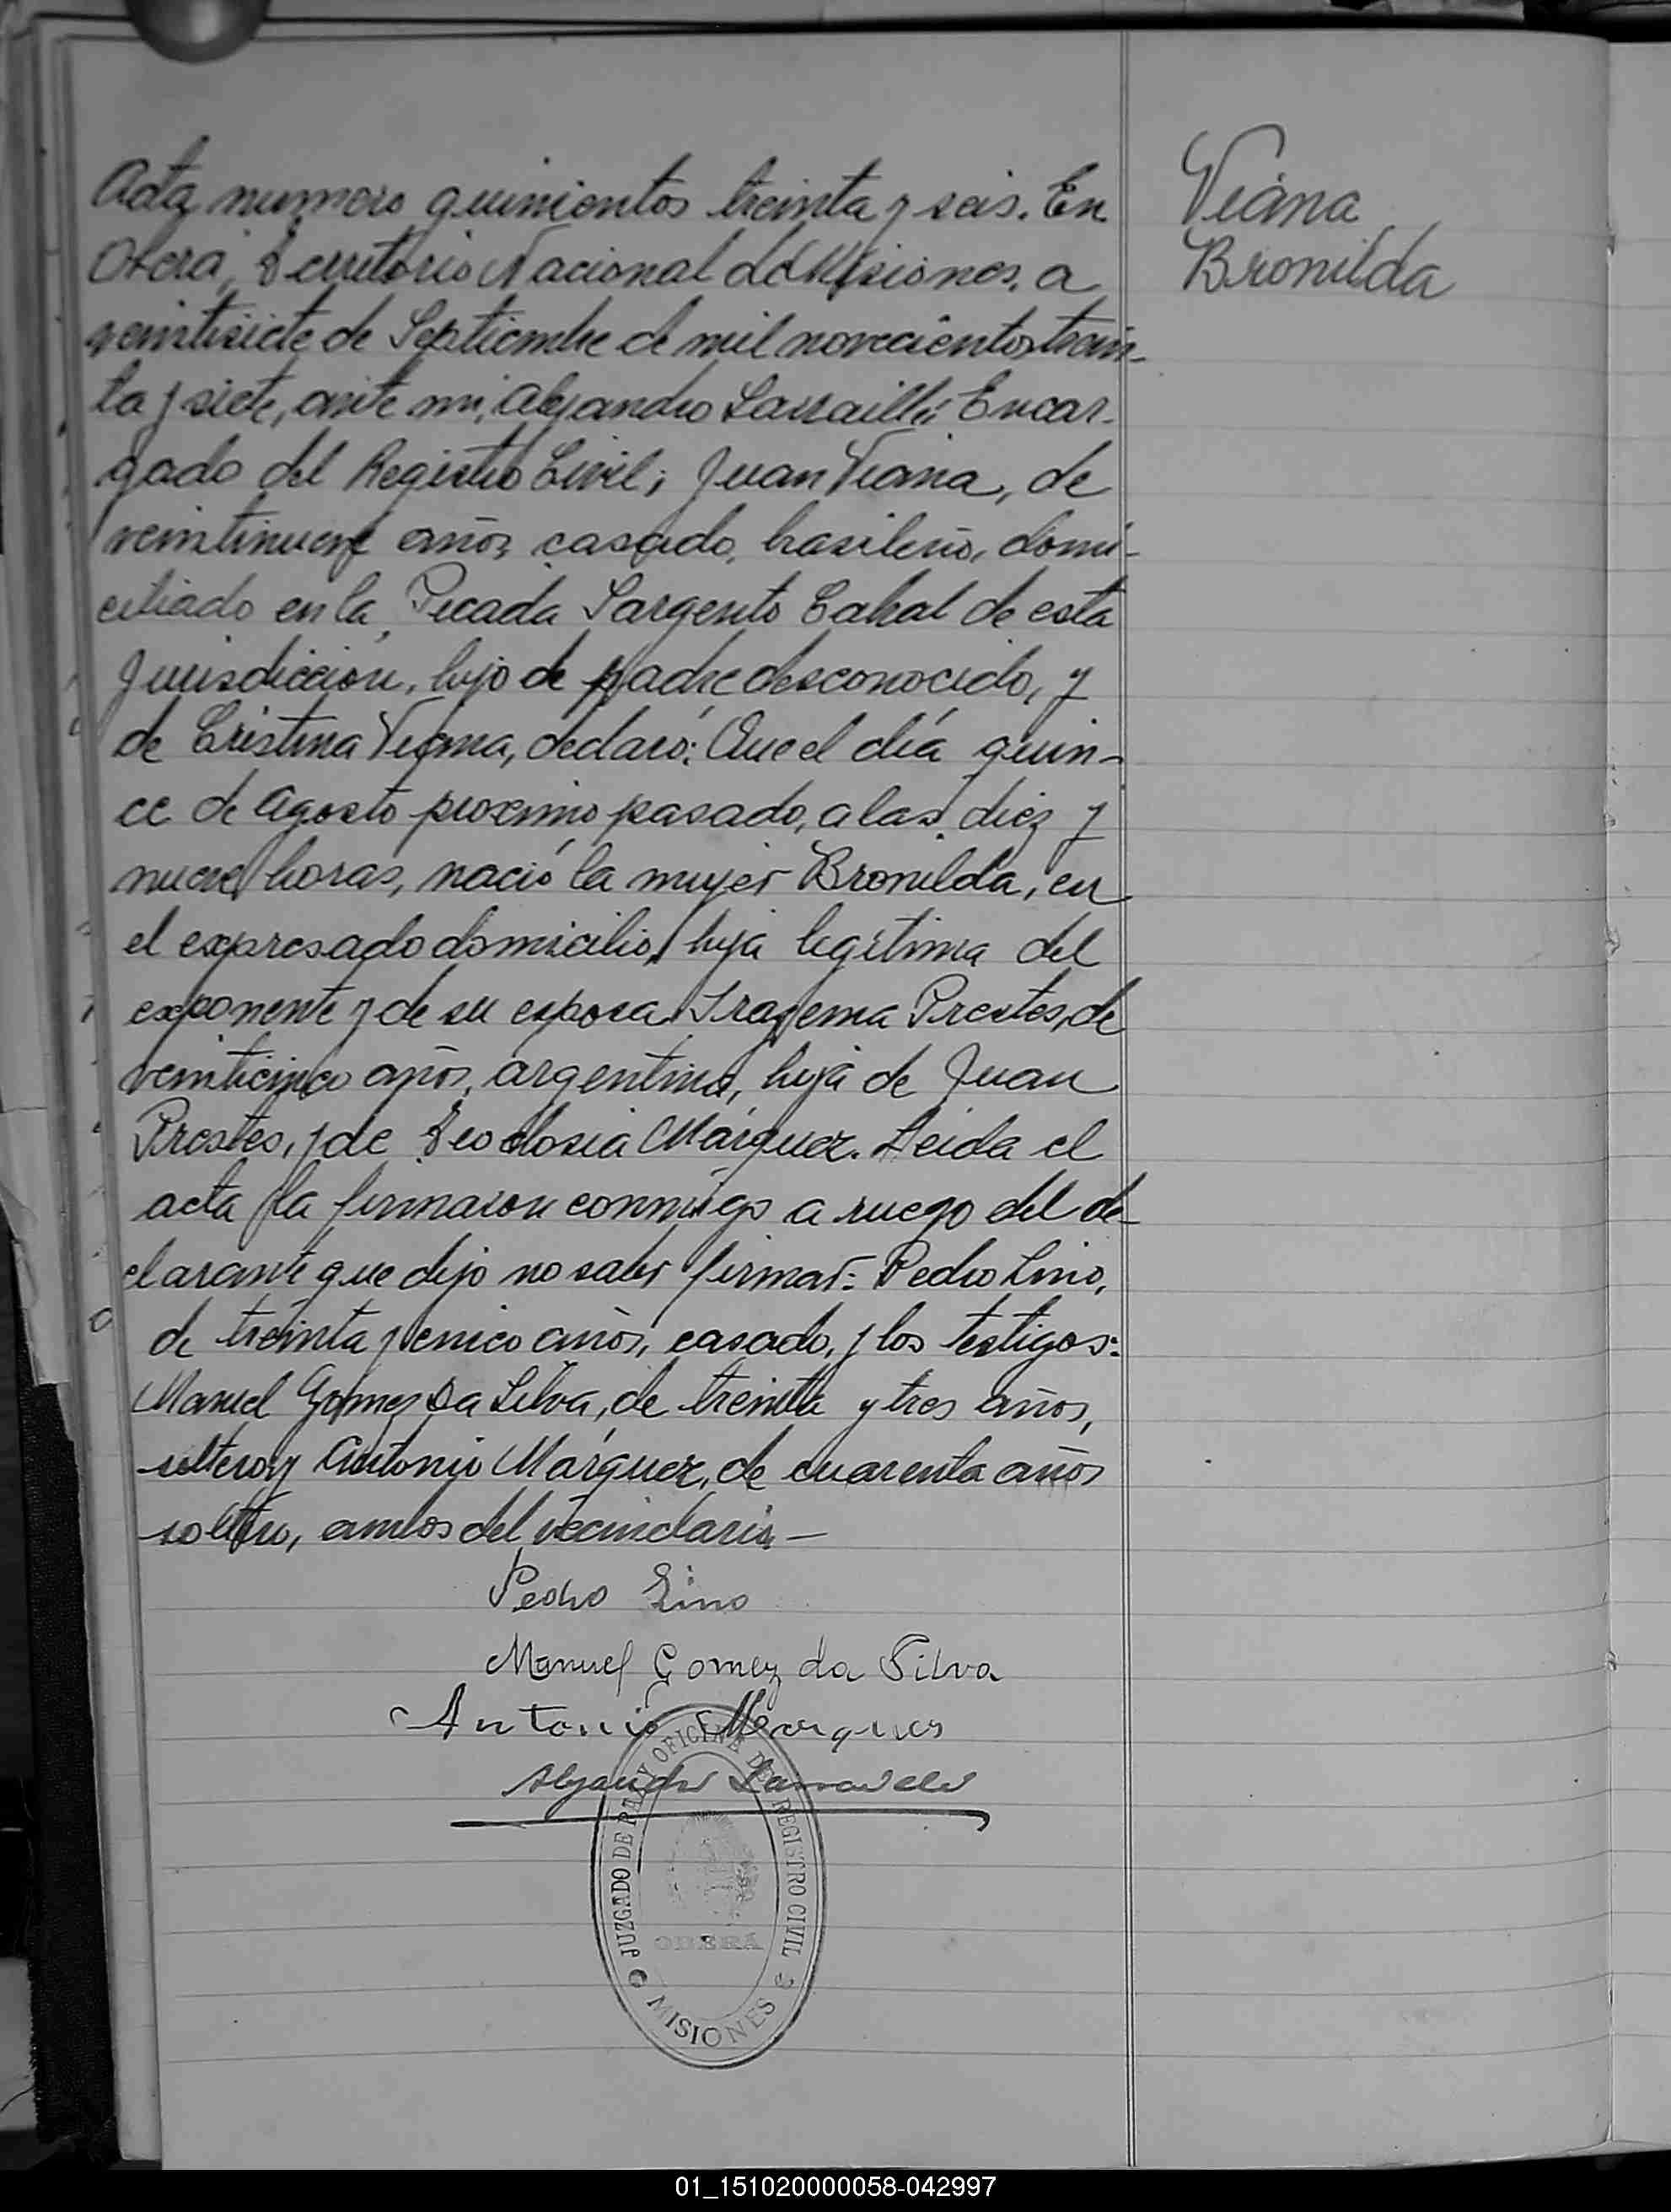 Acta numero quinientos treinta y seis. En
Oberá, Territorio Nacional de Misiones, a
veintisiete de Septiembre de mil novecientos trein-
ta y siete, ante mi, Alejandro Encar-
gado del Registro Civil; Juan Viana, de
veintinueve años, casado, brasileño, domi-
ciliado en la Picada Sargento Cabral de esta
Jurisdicción, hijo de padre desconocido, y
de Cristina Viana, declaró: Que el día quin-
ce de Agosto proximo pasado, a las diez y
nueve horas, nació la mujer Bronilda, en
el expresado domicilio, hija legítima del
exponente y de su esposa Prestes, de
veinticinco años, argentina, hija de Juan
Prestes, y de Márquez. Leida el
acta la firmaron conmigo a ruego del de-
clarante que dijo no saber firmar: Pedro Lino,
de treinta y cinco años, casado, y los testigos:
Manuel Gomez Da Silva, de treinta y tres años,
soltero y Antonio Márquez, de cuarenta años
soltero, ambos del vecindario.—
Pedro Lino
Manuel Gomez da Silva
Antonio Marques
Alejandro
JUZGADO DE PAZ Y OFICINA DEL REGISTRO CIVIL
OBERÁ
MISIONES
Viana
Bronilda
01_151020000058-042997